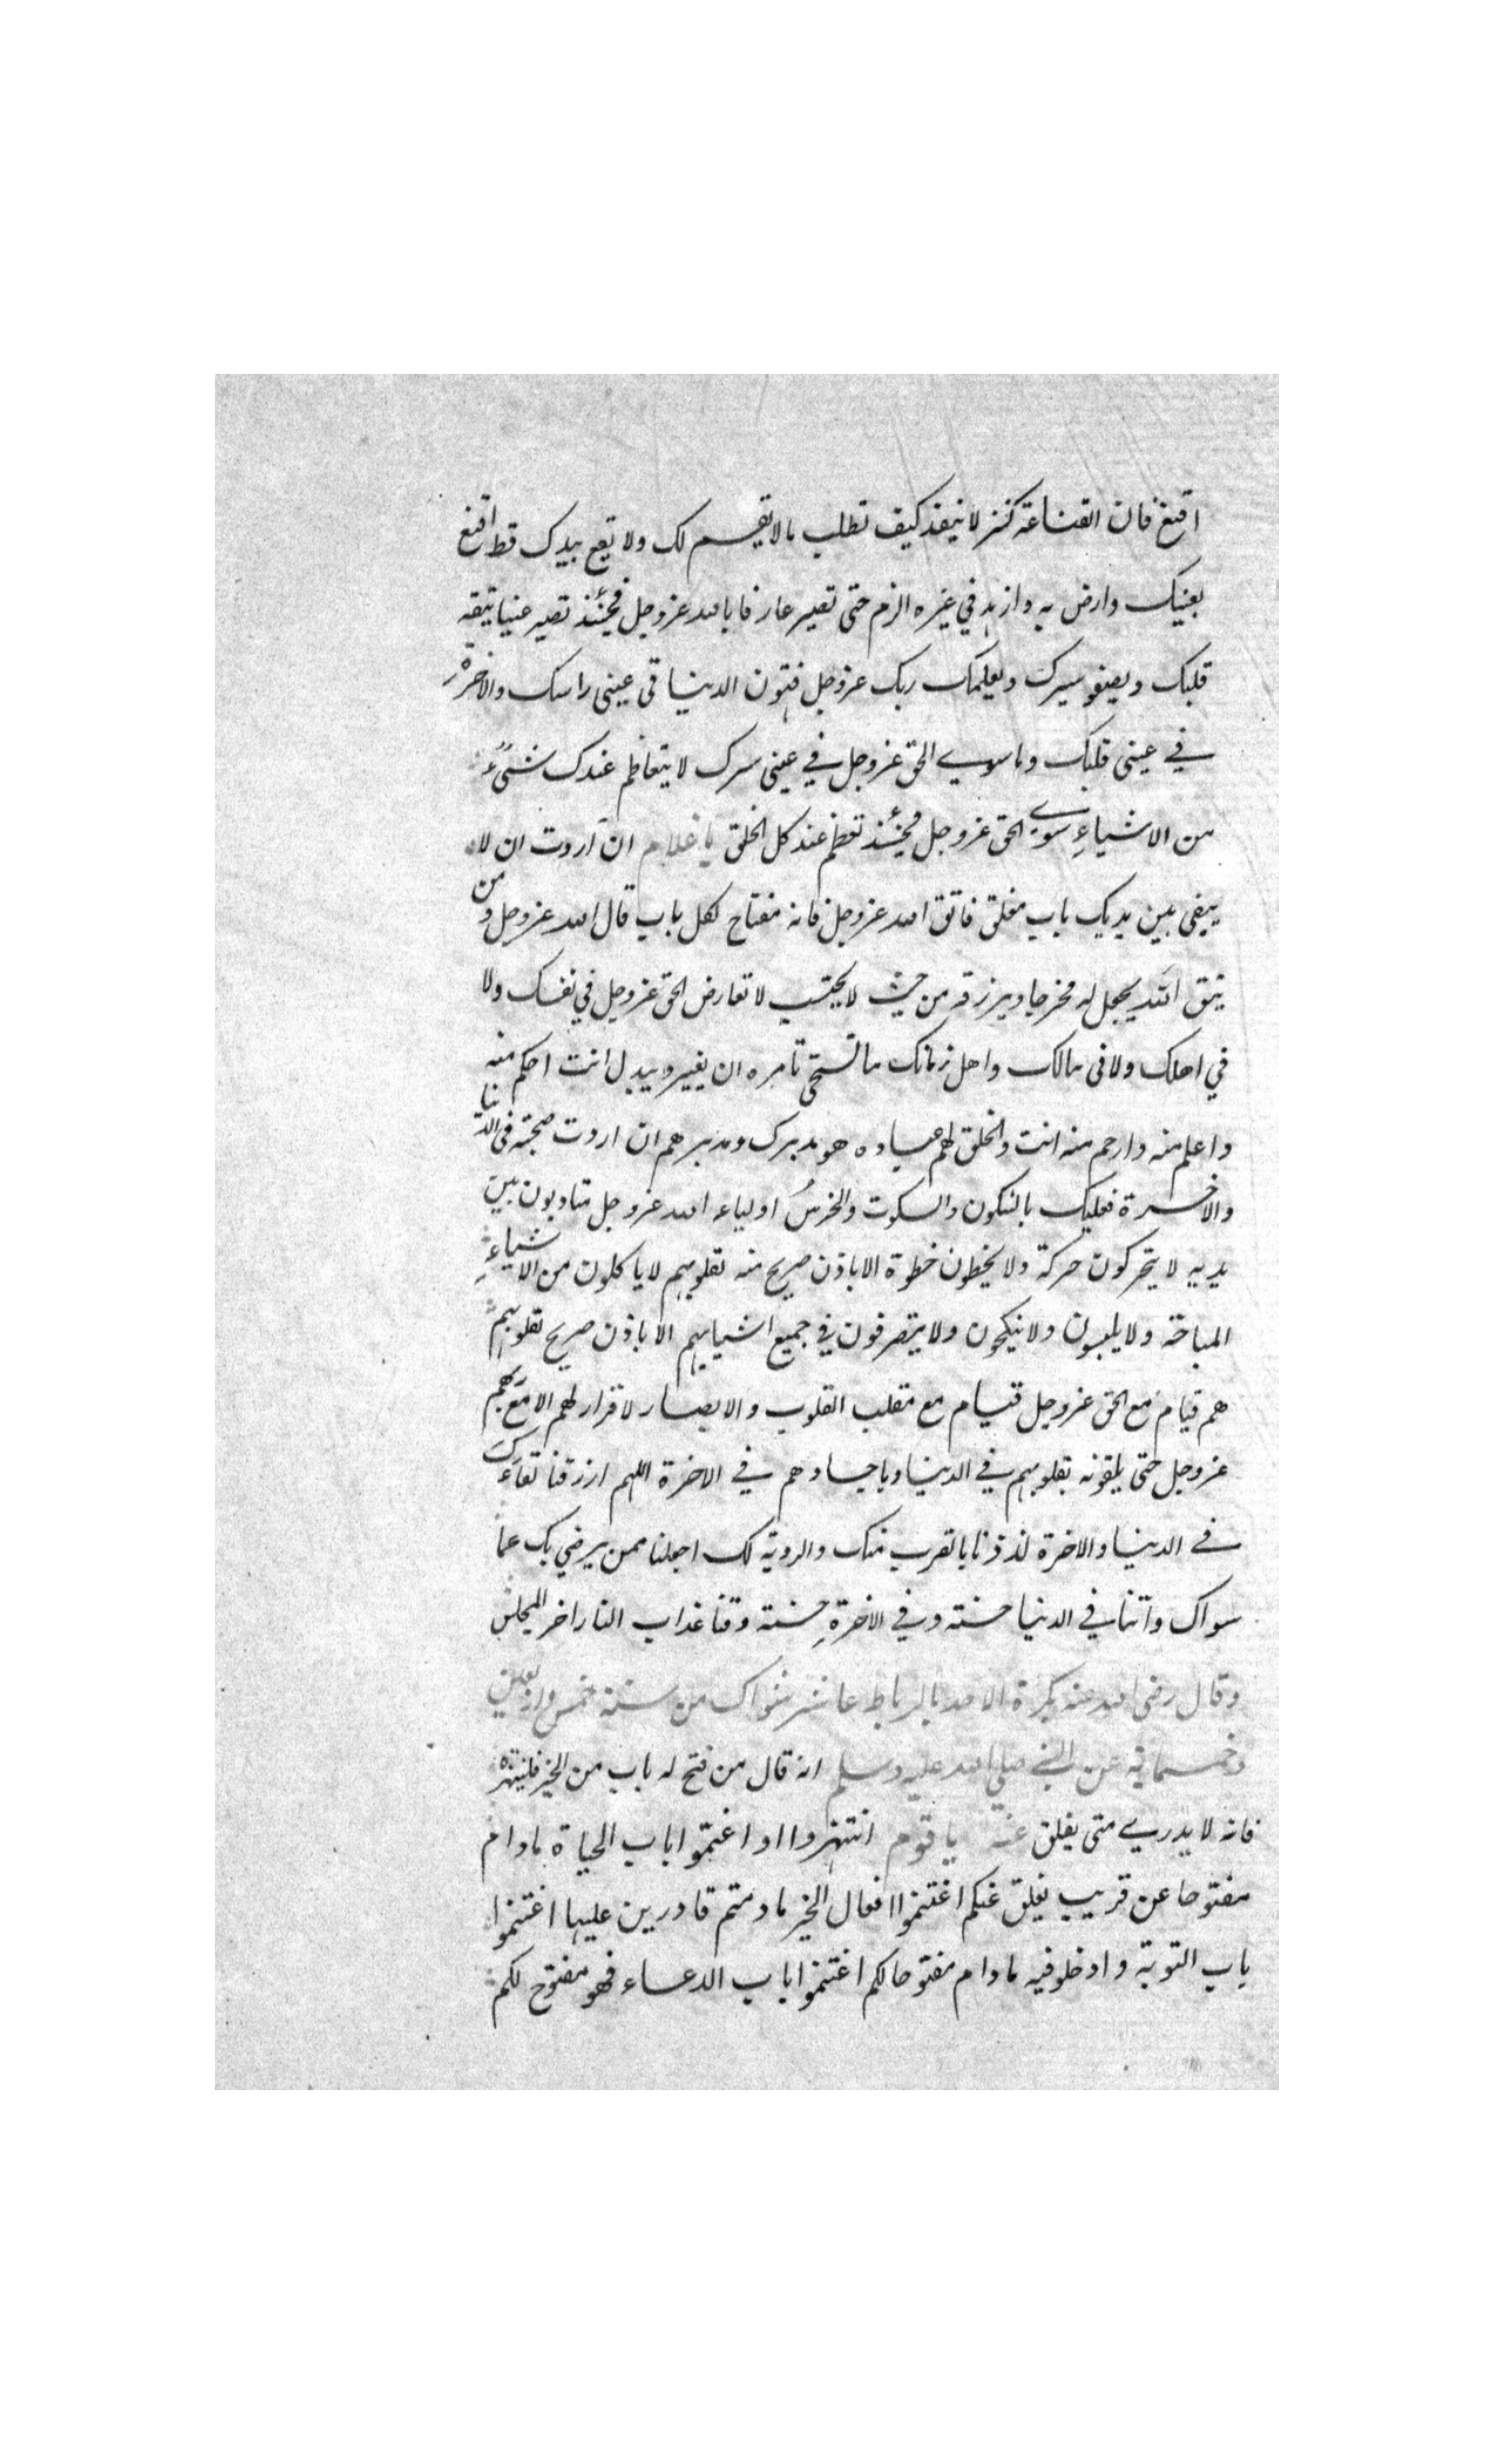 اقنع فان القناعة كنز لا ينفد كيف تطلب مالا يقسم لك ولا يقع بيدك قط اقنع
بعنيك وارض به وازهد في غيره الزم حتى تصير عارفا بالله عز وجل فحينئذ تصير غنيا يثق به
قلبك ويصفو سرك ويعلمك ربك عز وجل فتهون الدنيا في عينى راسك والاخرة
في عينى قلبك وما سوى الحق عز وجل في عينى سرك لا يتعاظم عندك شىء
من الاشياء سوى الحق عز وجل فحينئذ تعظم عند كل الخلق يا غلام ان اردت ان لا
يبقى بين يديك باب مغلق فاتق الله عز وجل فانه مفتاح لكل باب قال الله عز وجل ومن
يتق الله يجعل له مخرجا ويرزقه من حيث لا يحتسب لا تعارض الحق عز وجل في نفسك ولا
في اهلك ولا فى مالك واهل زمانك ما تستحى تامره ان يغير ويبدل انت احكم منه
واعلم منه وارحم منه انت والخلق لهم عباده هو مدبرك ومدبرهم ان اردت صحبته فى الدنيا
والاخرة فعليك بالسكون والسكوت والخرس اولياء الله عز وجل متادبون بين
يديه لا يتحركون حركة ولا يخطون خطوة الا باذن صريح منه لقلوبهم لا ياكلون من الاشياء
المباحة ولا يلبسون ولا ينكحون ولا يتصرفون في جميع اشيايهم الا باذن صريح لقلوبهم
هم قيام مع الحق عز وجل قيام مع مقلب القلوب والابصار لا قرار لهم الا مع ربهم
عز وجل حتى يلقونه بقلوبهم في الدنيا وباجسادهم في الاخرة اللهم ارزقنا لقاءك
في الدنيا والاخرة لذذنا بالقرب منك والروية لك اجعلنا ممن يرضي بك عما
سواك واتنا في الدنيا حسنة وفي الاخرة حسنة وقنا عذاب النار اخر المجلس
وقال رضى الله عنه بكرة الاحد بالرباط عاشر شوال من سنة خمس واربعين
وخمسماية عن النبي صلى الله عليه وسلم انه قال من فتح له باب من الخير فلينتهزه
فانه لا يدري متى يغلق عنه يا قوم انتهزوا واغتنموا باب الحياة مادام
مفتوحا عن قريب يغلق عنكم اغتنموا افعال الخير ما دمتم قادرين عليها اغتنموا
باب التوبة وادخلو فيه مادام مفتوحا لكم اغتنموا باب الدعاء فهو مفتوح لكم